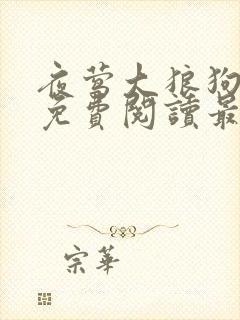 夜莺大狼狗
免費閱讀最
宗華